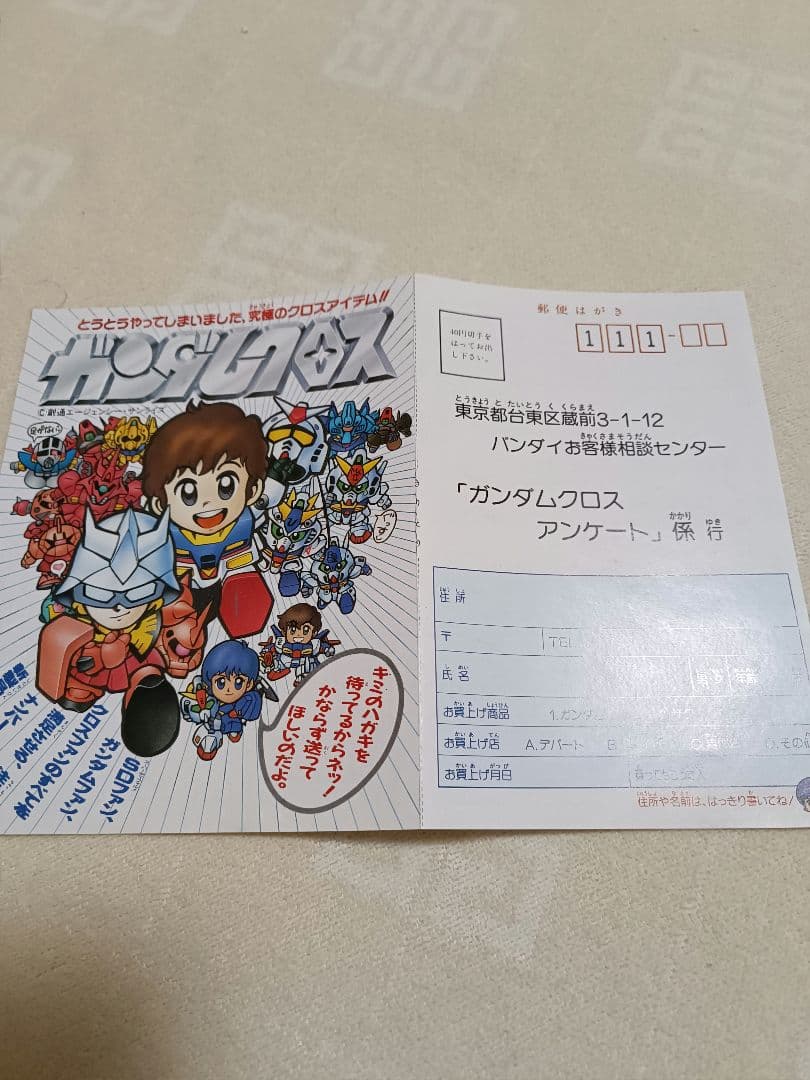 とうとうやってしまいました、究極のクロスアイテム!!
ガンダムクロス
©創通エージェンシー・サンライズ
足がない
SDファン、
ガンダムファン、
クロスファンのすべてを
満足させる、
ナンバー
キミのハガキを
待ってるからネッ!
かならず送って
ほしいのだよ。
郵便はがき
40円切手を
はってお出
し下さい。
111-
東京都台東区蔵前3-1-12
バンダイお客様相談センター
「ガンダムクロス
アンケート」係 行
住所
〒 TEL
氏名 男・女 年齢
お買上げ商品 1.ガンダ
お買上げ店 A.デパート B.
お買上げ月日
住所や名前は、はっきり書いてね!